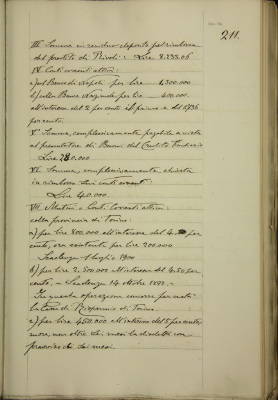 211.
III. Somma in rendite deposte pel rimborso
del prestito di Rivoli: Lire 8.233.06
IV. Conti correnti attivi:
a) sul Banco di Napoli per lire 1,300.000
b) sulla Banca Nazionale per lire 400.000
all'interesse del 2 per cento il primo e del
per cento.
V. Somma, complessivamente pagabile a vista
al presentatore di Buoni del Credito Fondiario
Lire 280.000
VI. Somma, complessivamente chiesta
in rimborso sui conti correnti.
Lire 40.000.
VII. Mutui e Conti Correnti attivi
colla provincia di Torino:
a) per lire 800.000 all'interesse del 4.50 per
cento, ora ridotto per lire 200.000
Scadenza 1 luglio 1900
b) per lire 2.500.000 all'interesse del 4.50 per
cento. - Scadenza 14 ottobre
In questa operazione concorre per metà
la Cassa di Risparmio di Torino.
c) per lire 450.000 all'interesse del 5 per cento,
mora non oltre sei mesi la disdetta con
preavviso di sei mesi.